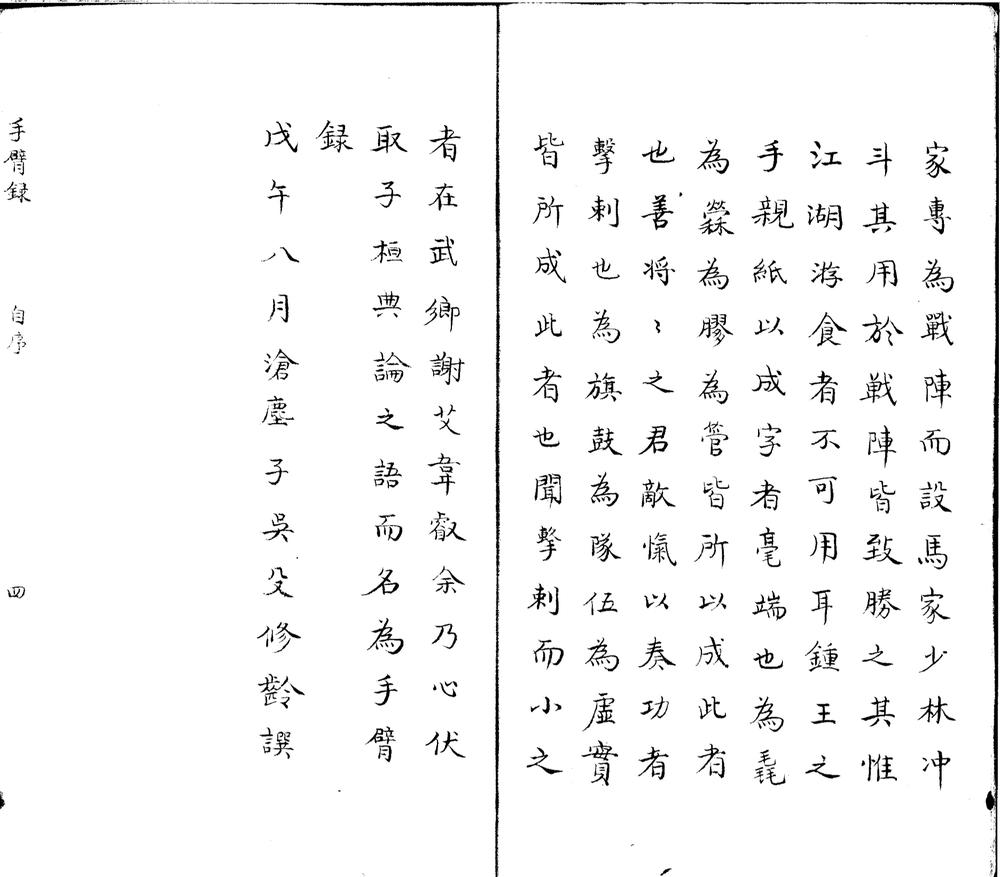 家專為戰陣而設馬家少林冲
斗其用於戰陣皆致勝之其惟
江湖游食者不可用耳鍾王之
手親紙以成字者毫端也為毳
為糵為膠為管皆所以成此者
也善将〻之君敵愾以奏功者
擊刺也為旗鼓為隊伍為虛實
皆所成此者也聞擊刺而小之
者在武鄉謝艾韋叡余乃心伏
取子桓典論之語而名為手臂
録
戊午八月滄塵子吳殳修齡譔
手臂録 自序 四